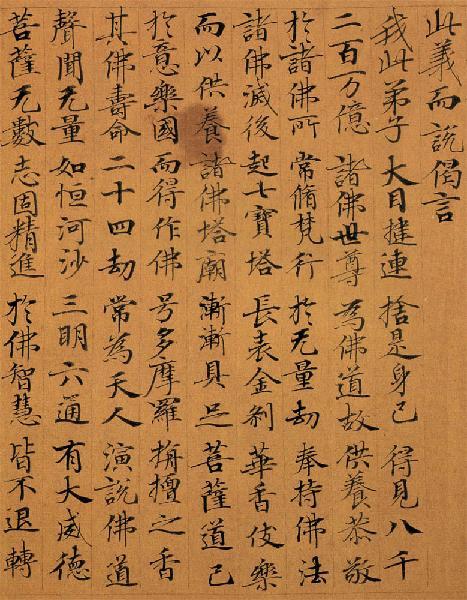 此義而說偈言
我此弟子 大目揵連 捨是身已 得見八千
二百万億 諸佛世尊 為佛道故 供養恭敬
於諸佛所 常脩梵行 於无量劫 奉持佛法
諸佛滅後 起七寶塔 長表金刹 華香伎樂
而以供養 諸佛塔廟 漸漸具足 菩薩道已
於意樂國 而得作佛 号多摩羅 栴檀之香
其佛壽命 二十四劫 常為天人 演說佛道
聲聞无量 如恒河沙 三明六通 有大威德
菩薩无數 志固精進 於佛智慧 皆不退轉